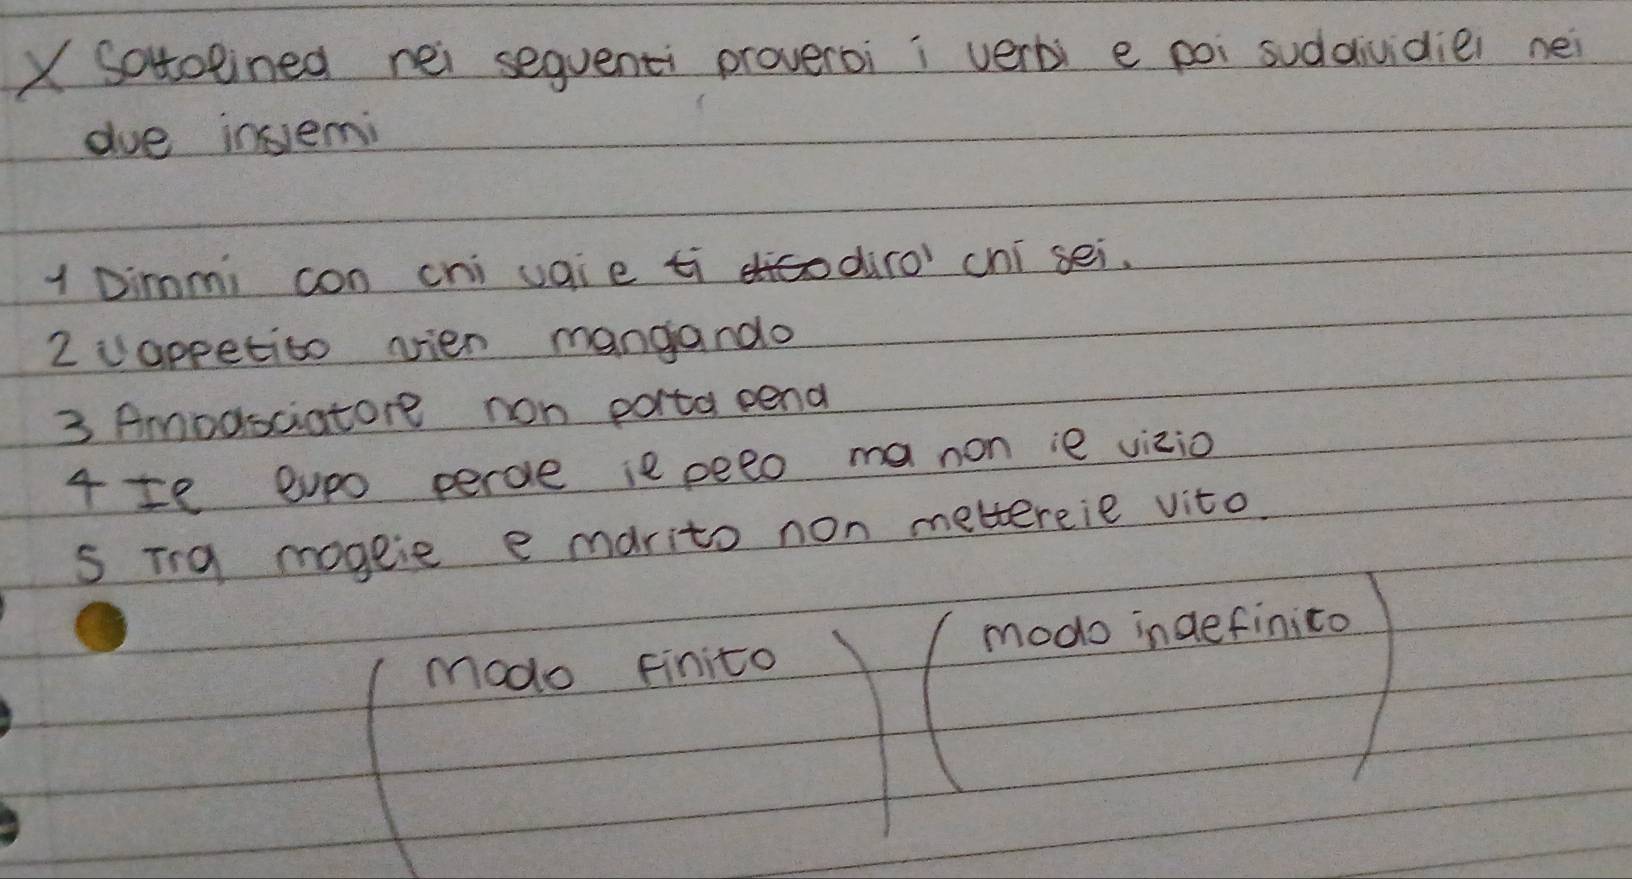 X Sottolinea nei seguenti proverbi i verbi e poi suddividili nei
due insiemi
1 Dimmi con chi vai e ti dico dirò chi sei.
2 L'appetito vien mangando
3 Ambasciatore non porta pena
4 Il lupo perde il pelo ma non il vizio
5 Tra moglie e marito non mettere il dito.
modo finito modo indefinito